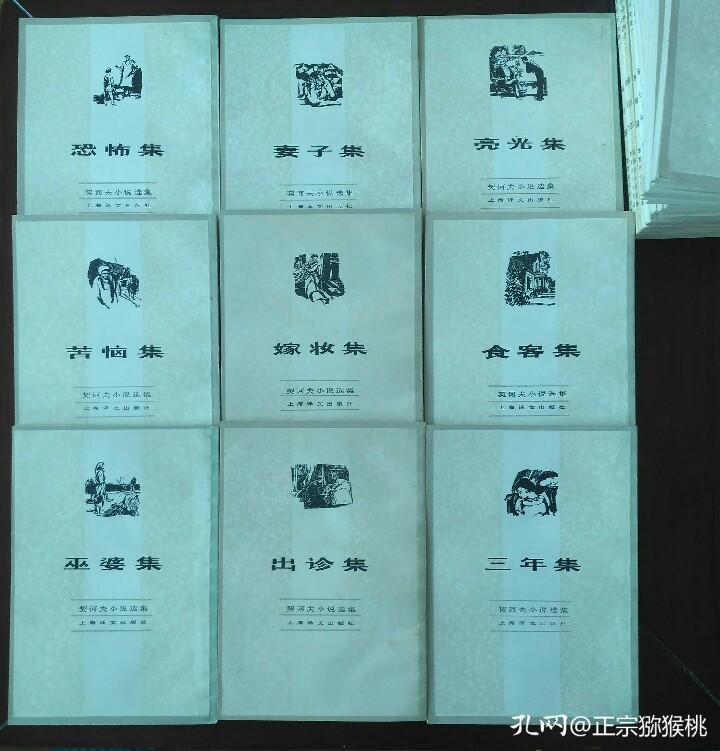 恐怖集
契诃夫小说选集
上海译文出版社
妻子集
契诃夫小说选集
上海译文出版社
亮光集
契诃夫小说选集
上海译文出版社
苦恼集
契诃夫小说选集
上海译文出版社
嫁妆集
契诃夫小说选集
上海译文出版社
食客集
契诃夫小说选集
上海译文出版社
巫婆集
契诃夫小说选集
上海译文出版社
出诊集
契诃夫小说选集
上海译文出版社
三年集
契诃夫小说选集
上海译文出版社
孔网@正宗猕猴桃